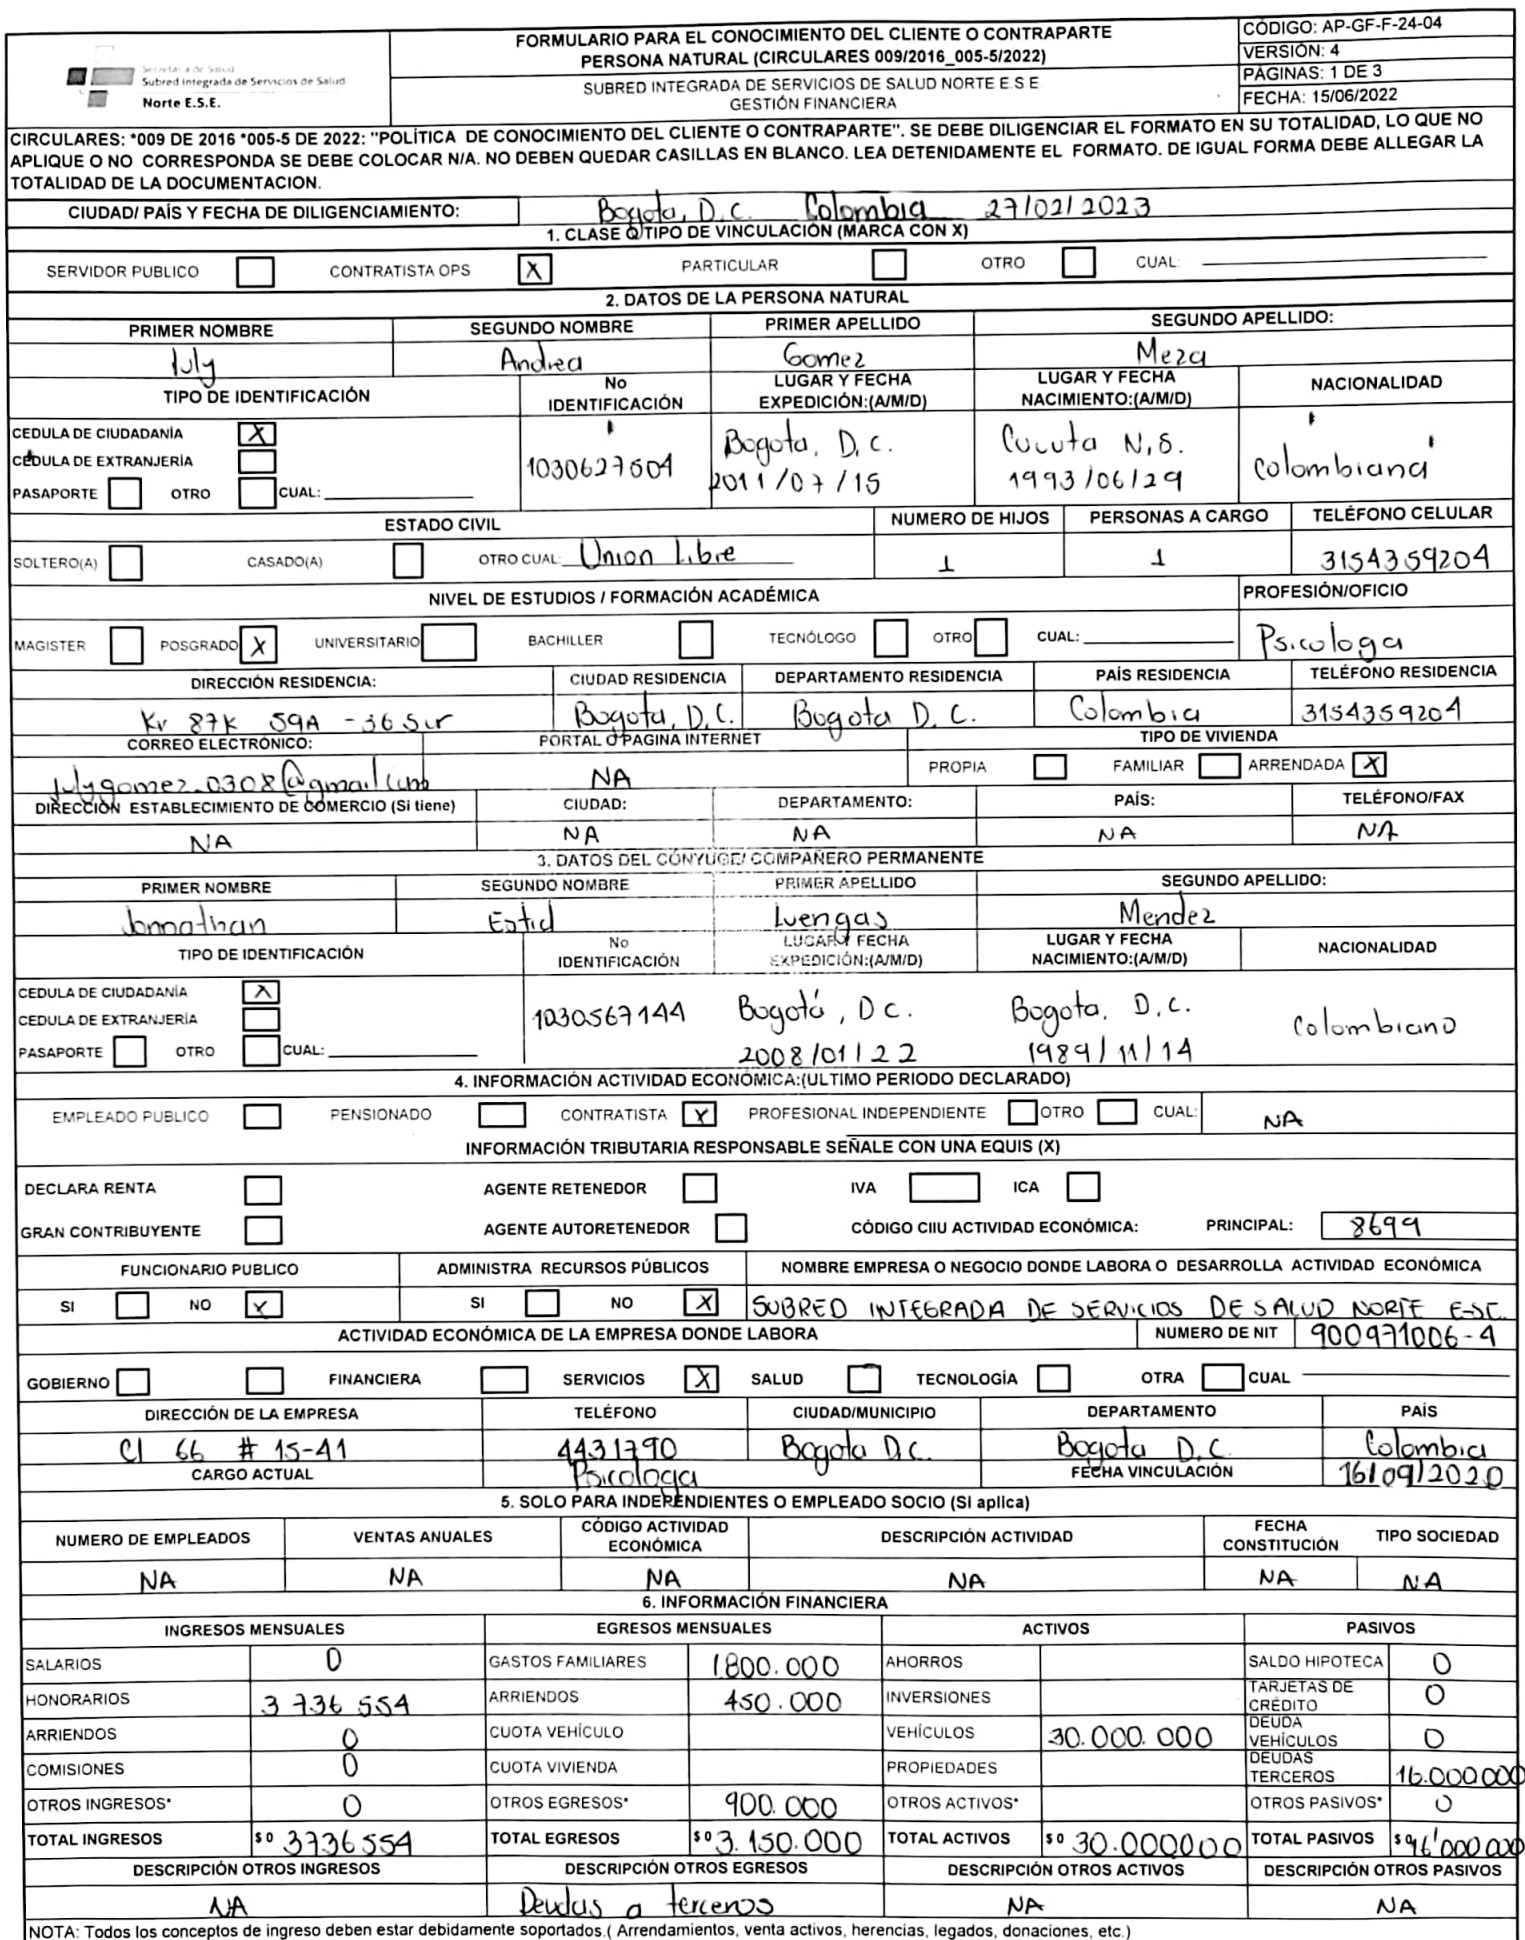 Secretaría de Salud
Subred Integrada de Servicios de Salud
Norte E.S.E.
FORMULARIO PARA EL CONOCIMIENTO DEL CLIENTE O CONTRAPARTE
PERSONA NATURAL (CIRCULARES 009/2016_005-5/2022)
SUBRED INTEGRADA DE SERVICIOS DE SALUD NORTE E.S.E
GESTIÓN FINANCIERA
CÓDIGO: AP-GF-F-24-04
VERSIÓN: 4
PÁGINAS: 1 DE 3
FECHA: 15/06/2022
CIRCULARES: *009 DE 2016 *005-5 DE 2022: "POLÍTICA DE CONOCIMIENTO DEL CLIENTE O CONTRAPARTE". SE DEBE DILIGENCIAR EL FORMATO EN SU TOTALIDAD, LO QUE NO
APLIQUE O NO CORRESPONDA SE DEBE COLOCAR N/A. NO DEBEN QUEDAR CASILLAS EN BLANCO. LEA DETENIDAMENTE EL FORMATO. DE IGUAL FORMA DEBE ALLEGAR LA
TOTALIDAD DE LA DOCUMENTACION.
CIUDAD/ PAÍS Y FECHA DE DILIGENCIAMIENTO: Bogota, D.C. Colombia 27/02/2023
1. CLASE O TIPO DE VINCULACIÓN (MARCA CON X)
SERVIDOR PUBLICO CONTRATISTA OPS X PARTICULAR OTRO CUAL:
2. DATOS DE LA PERSONA NATURAL
PRIMER NOMBRE SEGUNDO NOMBRE PRIMER APELLIDO SEGUNDO APELLIDO:
July Andrea Gomez Meza
TIPO DE IDENTIFICACIÓN No IDENTIFICACIÓN LUGAR Y FECHA EXPEDICIÓN:(A/M/D) LUGAR Y FECHA NACIMIENTO:(A/M/D) NACIONALIDAD
CEDULA DE CIUDADANÍA X
CEDULA DE EXTRANJERÍA
PASAPORTE OTRO CUAL:
1030627604 Bogota, D.C. 2011/07/15 Cucuta N.S. 1993/06/29 Colombiana
ESTADO CIVIL NUMERO DE HIJOS PERSONAS A CARGO TELÉFONO CELULAR
SOLTERO(A) CASADO(A) OTRO CUAL: Union Libre 1 1 3154359204
NIVEL DE ESTUDIOS / FORMACIÓN ACADÉMICA PROFESIÓN/OFICIO
MAGISTER POSGRADO X UNIVERSITARIO BACHILLER TECNÓLOGO OTRO CUAL: Psicologa
DIRECCIÓN RESIDENCIA: CIUDAD RESIDENCIA DEPARTAMENTO RESIDENCIA PAÍS RESIDENCIA TELÉFONO RESIDENCIA
Kr 87K 59A - 36 Sur Bogota, D.C. Bogota D.C. Colombia 3154359204
CORREO ELECTRÓNICO: PORTAL O PAGINA INTERNET TIPO DE VIVIENDA
julygomez.0308@gmail.com NA PROPIA FAMILIAR ARRENDADA X
DIRECCIÓN ESTABLECIMIENTO DE COMERCIO (Si tiene) CIUDAD: DEPARTAMENTO: PAÍS: TELÉFONO/FAX
NA NA NA NA NA
3. DATOS DEL CÓNYUGE/ COMPAÑERO PERMANENTE
PRIMER NOMBRE SEGUNDO NOMBRE PRIMER APELLIDO SEGUNDO APELLIDO:
Jonnathan Estid Luengas Mendez
TIPO DE IDENTIFICACIÓN No IDENTIFICACIÓN LUGAR Y FECHA EXPEDICIÓN:(A/M/D) LUGAR Y FECHA NACIMIENTO:(A/M/D) NACIONALIDAD
CEDULA DE CIUDADANÍA X
CEDULA DE EXTRANJERÍA
PASAPORTE OTRO CUAL:
1030567144 Bogotá, D C. 2008/01/22 Bogota, D.C. 1989/11/14 Colombiano
4. INFORMACIÓN ACTIVIDAD ECONÓMICA:(ULTIMO PERIODO DECLARADO)
EMPLEADO PUBLICO PENSIONADO CONTRATISTA X PROFESIONAL INDEPENDIENTE OTRO CUAL: NA
INFORMACIÓN TRIBUTARIA RESPONSABLE SEÑALE CON UNA EQUIS (X)
DECLARA RENTA AGENTE RETENEDOR IVA ICA
GRAN CONTRIBUYENTE AGENTE AUTORETENEDOR CÓDIGO CIIU ACTIVIDAD ECONÓMICA: PRINCIPAL: 8699
FUNCIONARIO PUBLICO ADMINISTRA RECURSOS PÚBLICOS NOMBRE EMPRESA O NEGOCIO DONDE LABORA O DESARROLLA ACTIVIDAD ECONÓMICA
SI NO X SI NO X SUBRED INTEGRADA DE SERVICIOS DE SALUD NORTE E.S.E.
ACTIVIDAD ECONÓMICA DE LA EMPRESA DONDE LABORA NUMERO DE NIT 900971006-4
GOBIERNO FINANCIERA SERVICIOS X SALUD TECNOLOGÍA OTRA CUAL
DIRECCIÓN DE LA EMPRESA TELÉFONO CIUDAD/MUNICIPIO DEPARTAMENTO PAÍS
Cl 66 # 15-41 4431790 Bogota D.C. Bogota D.C. Colombia
CARGO ACTUAL Psicologa FECHA VINCULACIÓN 16/09/2020
5. SOLO PARA INDEPENDIENTES O EMPLEADO SOCIO (Si aplica)
NUMERO DE EMPLEADOS VENTAS ANUALES CÓDIGO ACTIVIDAD ECONÓMICA DESCRIPCIÓN ACTIVIDAD FECHA CONSTITUCIÓN TIPO SOCIEDAD
NA NA NA NA NA NA
6. INFORMACIÓN FINANCIERA
INGRESOS MENSUALES EGRESOS MENSUALES ACTIVOS PASIVOS
SALARIOS 0 GASTOS FAMILIARES 1800.000 AHORROS SALDO HIPOTECA 0
HONORARIOS 3 736 554 ARRIENDOS 450.000 INVERSIONES TARJETAS DE CRÉDITO 0
ARRIENDOS 0 CUOTA VEHÍCULO VEHÍCULOS 30.000.000 DEUDA VEHÍCULOS 0
COMISIONES 0 CUOTA VIVIENDA PROPIEDADES DEUDAS TERCEROS 16.000000
OTROS INGRESOS* 0 OTROS EGRESOS* 900.000 OTROS ACTIVOS* OTROS PASIVOS* 0
TOTAL INGRESOS $0 3736554 TOTAL EGRESOS $0 3.150.000 TOTAL ACTIVOS $0 30.000000 TOTAL PASIVOS $ 16'000000
DESCRIPCIÓN OTROS INGRESOS DESCRIPCIÓN OTROS EGRESOS DESCRIPCIÓN OTROS ACTIVOS DESCRIPCIÓN OTROS PASIVOS
NA Deudas a terceros NA NA
NOTA: Todos los conceptos de ingreso deben estar debidamente soportados.( Arrendamientos, venta activos, herencias, legados, donaciones, etc.)